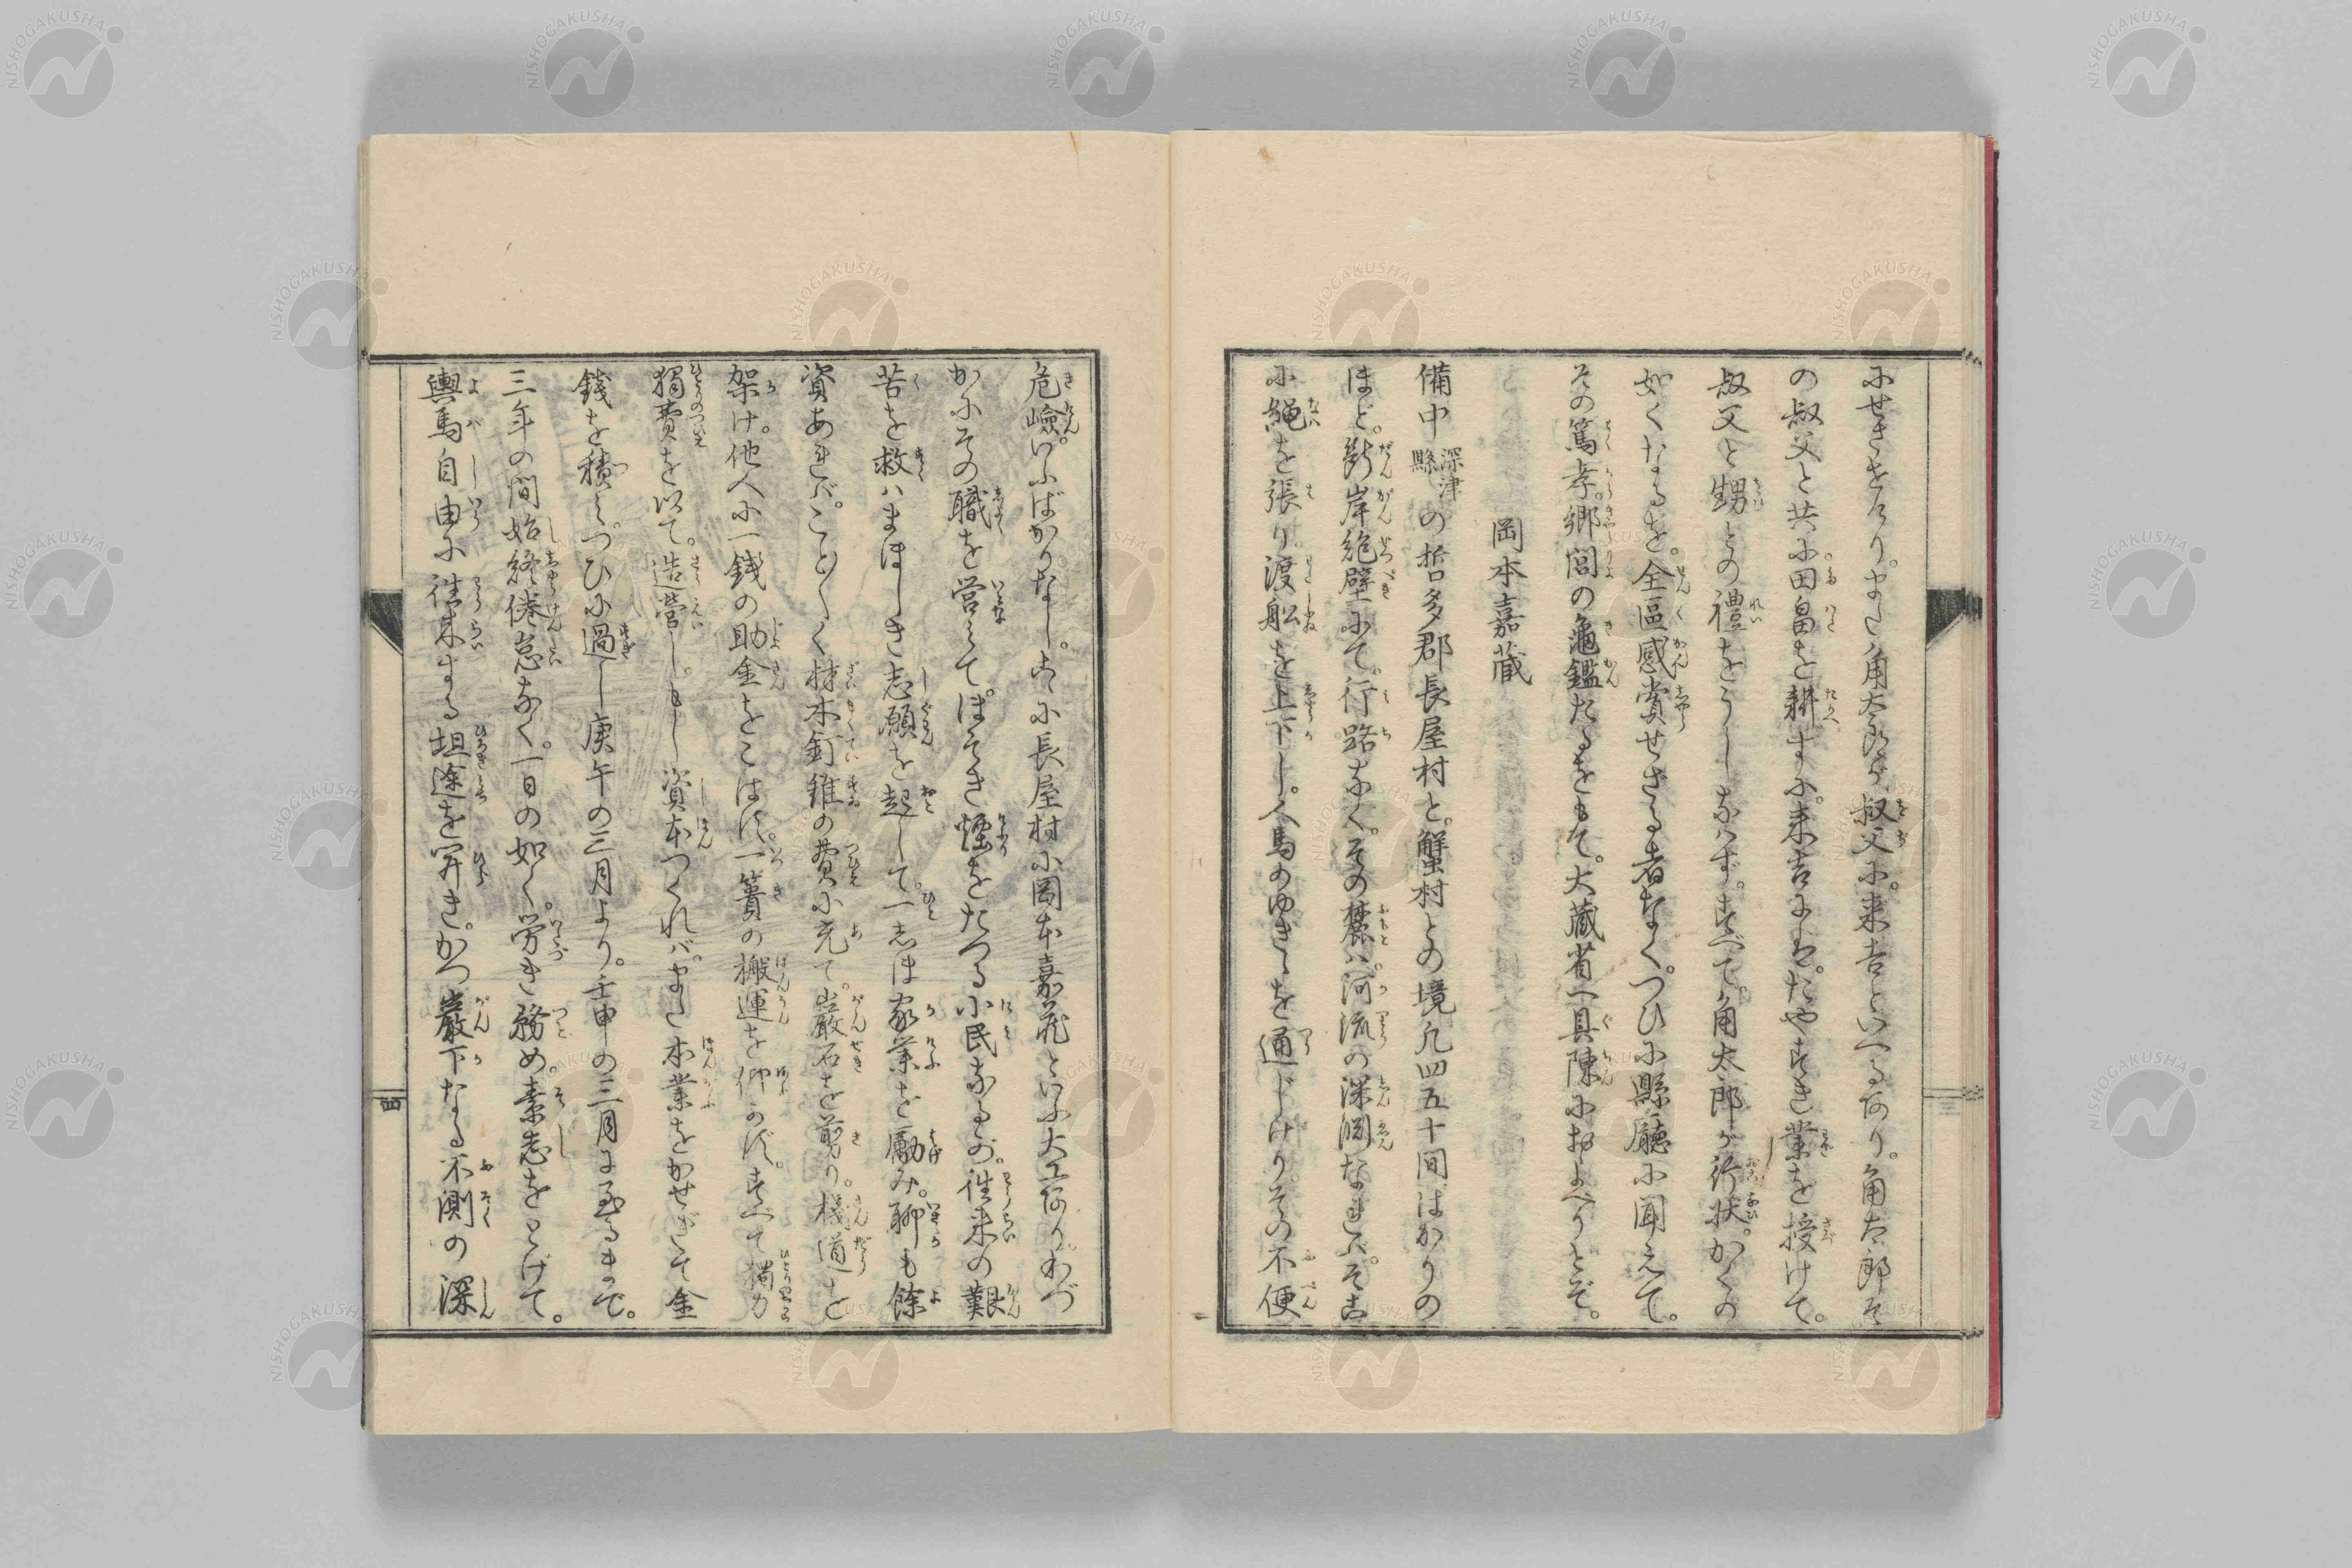 にせきをりけり。また角太郎が叔父に。来吉といへるあり。角太郎そ
の叔父と共に。田畠を耕すに。来吉には。たやすき業を授けて。
叔父と甥との禮をうしなはず。すべて。角太郎が行状。かくの
如くなるを。全區感賞せざる者なく。つひに縣廳に聞えて。
その篤孝。郷閭の亀鑑たるをもて。大蔵省へ具陳におよべりとぞ。
岡本嘉蔵
備中深津縣の哲多郡長屋村と。蟹村との境凡四五十間ばかりの
ほど。断岸絶壁にて。行路なく。その麓は。河流の深淵なれば。そこ
に繩を張り。渡船を上下し。人馬のゆきゝを通じけり。その不便
危嶮いふばかりなし。こゝに長屋村に岡本嘉蔵といふ大工あり。わづ
かにその職を営みて。ほそき煙をたつる小民なるが。往来の艱
苦を救はまほしき志願を起して。一志ほ家業を勵み。聊も餘
資あれば。こと〴〵く材木釘錐の費に充て。巌石を剪り。棧道を
架け。他人に一銭の助金をこはず。一簣の搬運を仰がず。すべて獨力
獨費を以て。造営し。もし資本つくれば。また本業をかせぎて金
錢を積み。つひに過し庚午の三月より。壬申の三月に至るまで。
三年の間始終倦怠なく。一日の如く。労き務め。素志をとげて。
輿馬自由に往来する坦途を開き。かつ巌下なる不測の深
四
NISHOGAKUSHA